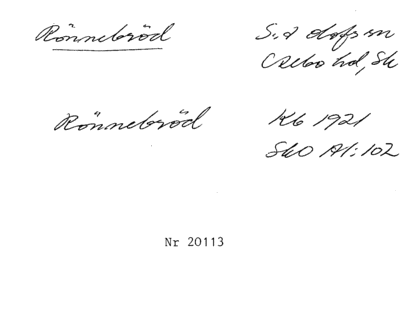 Rönnebröd
S. a dofs sn
Onsbo hd, Sk
Rönnebröd
Kb 1921
SkO A1:102
Nr 20113